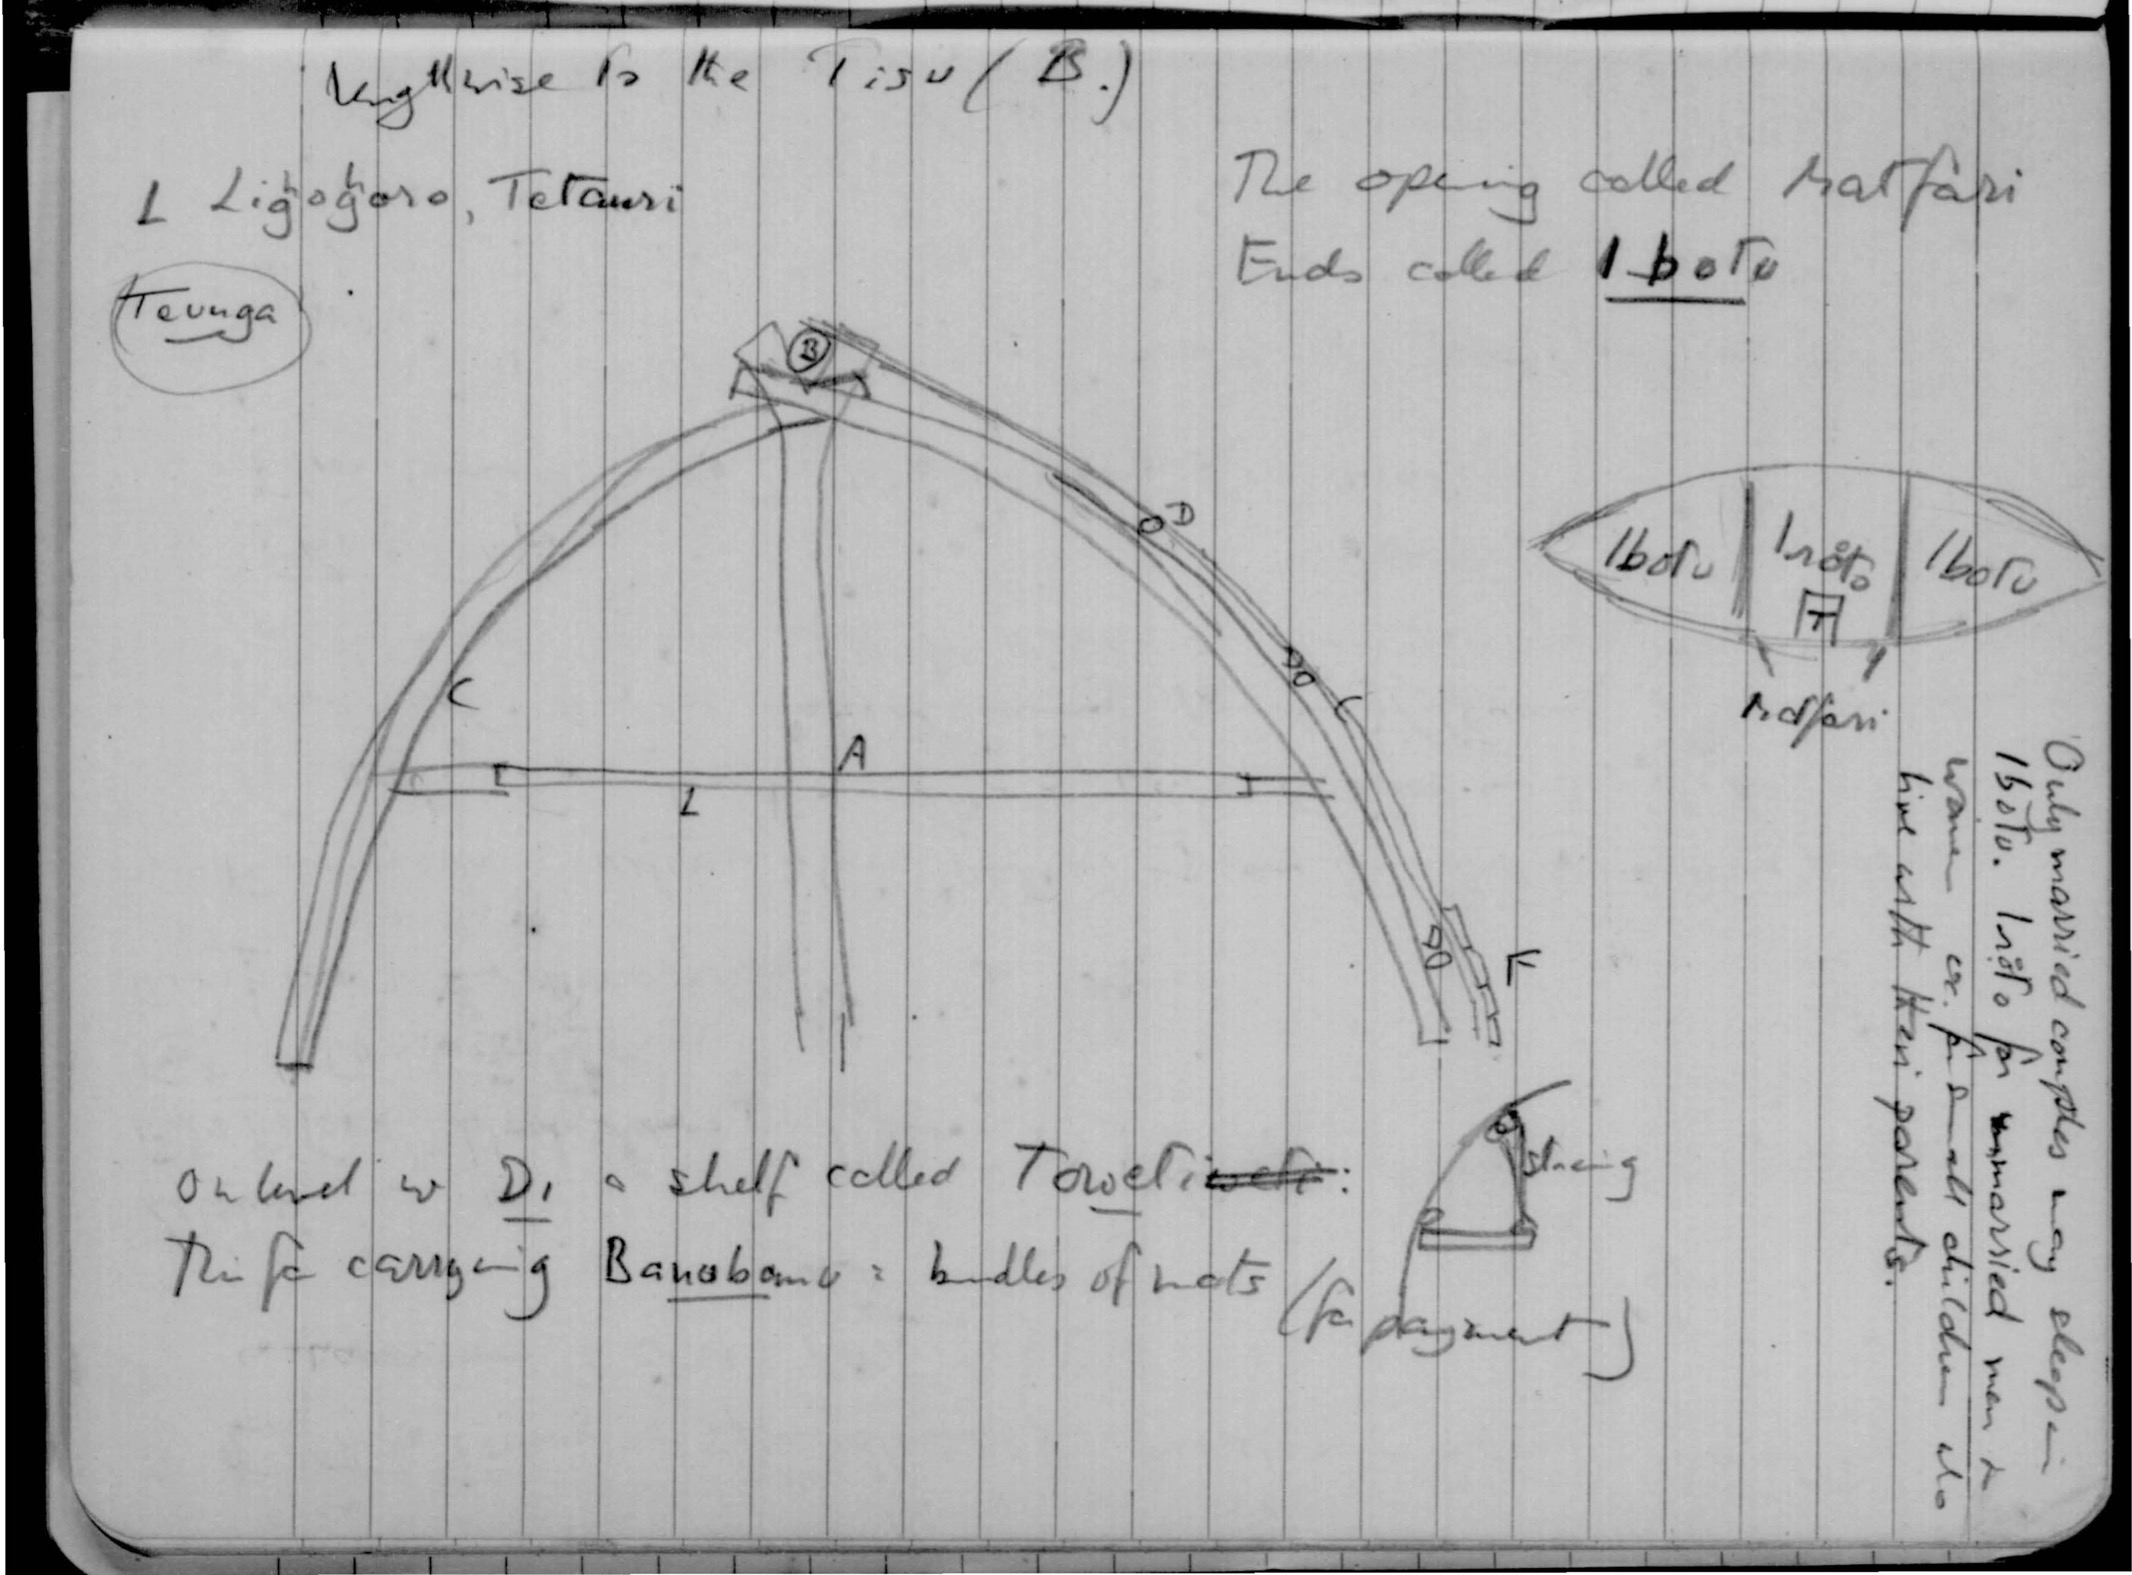 lengthwise to the Tisu (B.)
L Lig̃hog̃horo, Tetauri
Teunga
The opening called Matfari
Ends called Ibotu
B
D
D
C
C
A
L
D
E
Ibotu
Inoto
Ibotu
F
Matfari
Only married couples may sleep in
Ibotu. Inoto for unmarried men &
women or for small children who
live with their parents.
On level w D1 a shelf called Toweti:
string
This for carrying Banabanu = bundles of mats
(for payment)